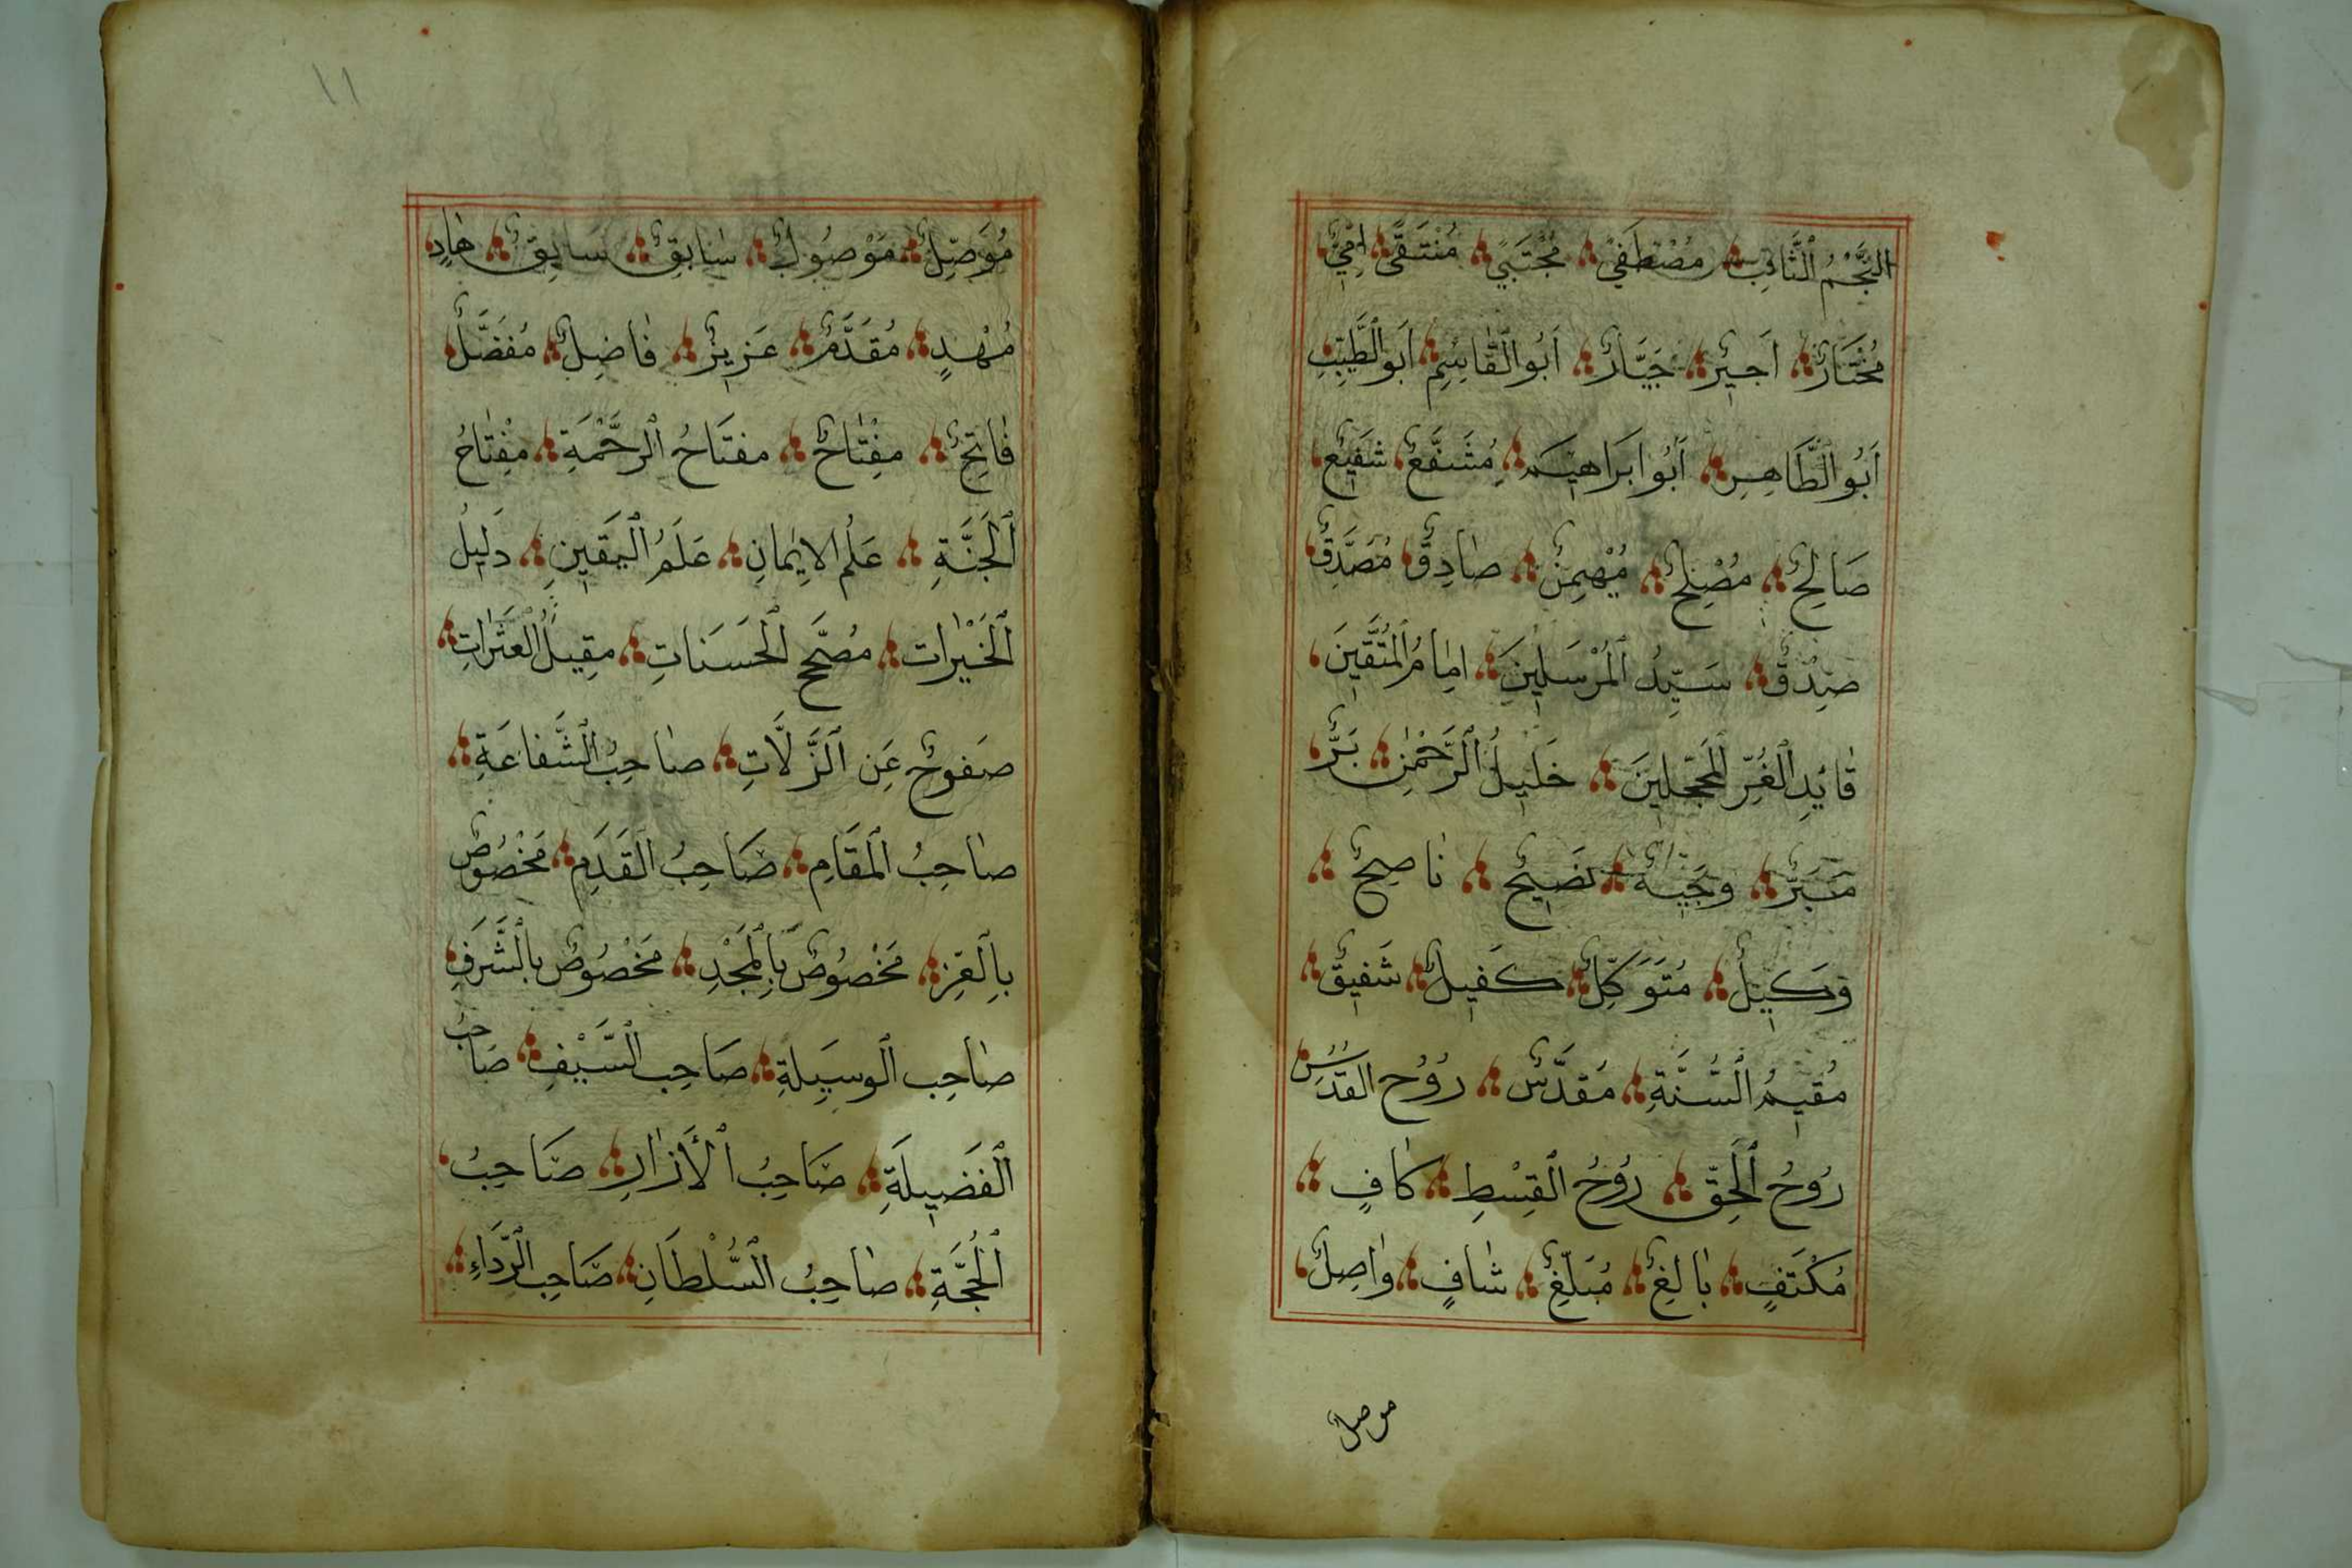 النَّجْمُ الثَّاقِبِ مُصْطَفًى مُجْتَبًى مُنْتَقًى اُمِّيٌّ
مُخْتَارٌ اَجِيْرٌ جَبَّارٌ اَبُو الْقَاسِمِ اَبُو الطَّيِّبِ
اَبُو الطَّاهِرِ اَبُو اِبَرَاهِيْمَ مُشَفَّعٌ شَفِيْعٌ
صَالِحٌ مُصْلِحٌ مُهْيمِنٌ صَادِقٌ مُصَدِّقٌ
صِدْقٌ سَيِّدُ الْمُرْسَلِيْنَ اِمَامُ الْمُتَّقِيْنَ
قَائِدِ الْغُرِّ الْمُحَجَّلِينَ خَلِيْلُ الرَّحْمٰنِ بَرٌّ
مَبَرٌّ وَجِيْهٌ نَصِيْحٌ نَاصِحٌ
وَكِيْلٌ مُتَوَكِّلٌ كَفِيْلٌ شَفِيْقٌ
مُقِيْمُ السُّنَّةِ مُقَدَّسٌ رُوْحُ القُدُسِ
رُوْحُ الْحَقِّ رُوْحُ الْقِسْطِ كَافٍ
مُكْتَفٍ بَالِغٌ مُبَلِّغٌ شَافٍ وَاصِلٌ
موصل
١١
مُوَصِّلٌ مَوْصُولٌ سَابِقٌ سَايِقٌ هَادٍ
مُهْدٍ مُقَدَّمٌ عَزِيزٌ فَاضِلٌ مُفَضَّلٌ
فَاتِحٌ مِفْتَاحٌ مفتَاحُ الرَّحْمَةِ مِفْتَاحُ
الْجَنَّةِ عَلَمُ الاِيمَانِ عَلَمُ الْيَقِينِ دَلِيلُ
الْخَيْرَاتِ مُصَحِّحُ الْحَسَنَاتِ مقِيلُ الْعَثَرَاتِ
صَفوحٌ عَنِ الزَّلَّاتِ صَاحِبُ الشَّفَاعَةِ
صَاحِبُ الْمَقَامِ صَاحِبُ الْقَدَمِ مَخْصُوصٌ
بِالْعِزِّ مَخْصُوصٌ بِالْمَجْدِ مَخْصُوصٌ بالْشَّرَفِ
صَاحِب الْوسِيلَةِ صَاحِب السَّيْفِ صَاحبُ
الْفَضِيلَةِ صَاحِبُ الْأَزَارِ صَاحِبُ
الْحُجَّةِ صَاحِبُ السُّلْطَانِ صَاحِب الرِّدَاءِ